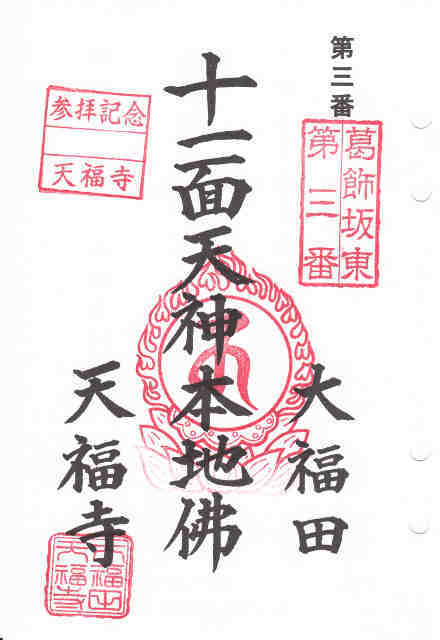 第三番
葛飾坂東
第三番
大福田
十一面天神本地佛
参拝記念
天福寺
天福寺